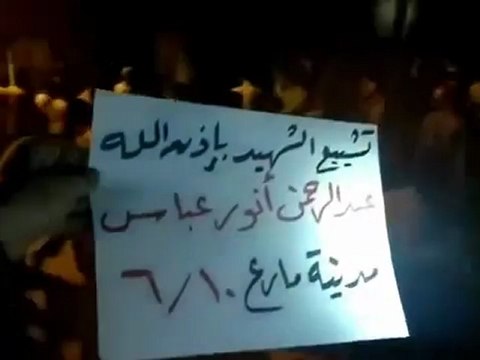 تشييع الشهيد بإذن الله
عبد الرحمن أنور عباس
مدينة مارع ٦/١٠